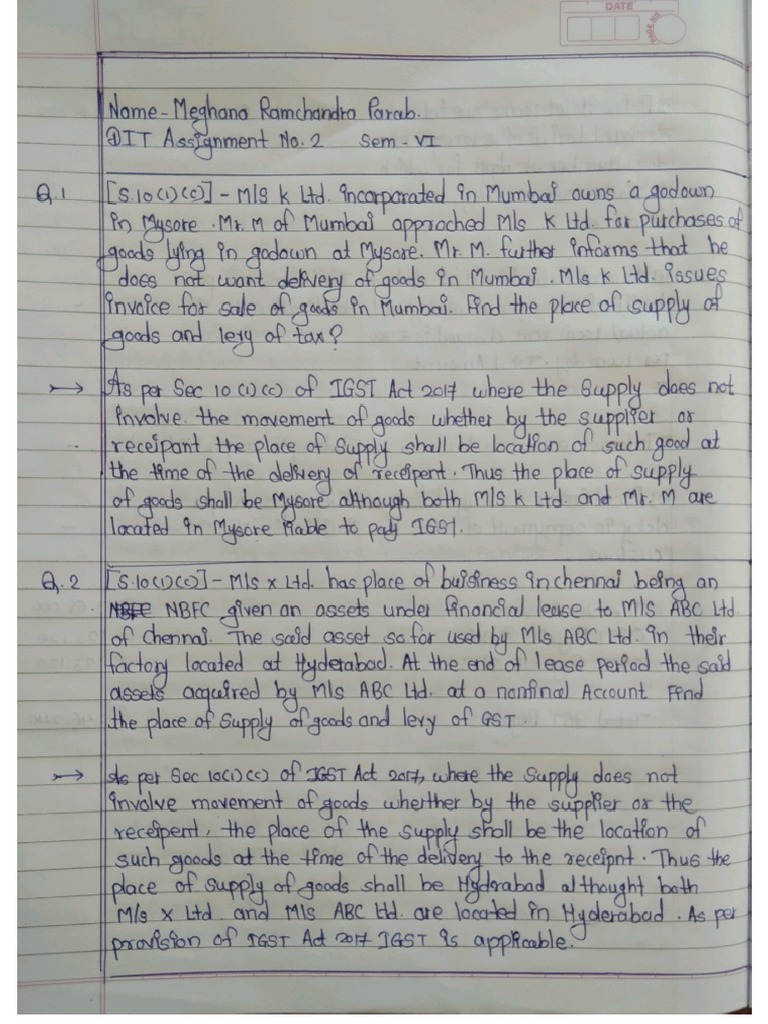 DATE
Name - Meghana Ramchandra Parab.
DIT Assignment No. 2 Sem - VI
Q.1 [S.10(1)(c)] - M/s K Ltd. incorporated in Mumbai owns a godown
in Mysore. Mr. M of Mumbai approched M/s K Ltd. for purchases of
goods lying in godown at Mysore. Mr. M. further informs that he
does not want delivery of goods in Mumbai. M/s K Ltd. issues
invoice for sale of goods in Mumbai. Find the place of supply of
goods and levy of tax?
→ As per Sec 10 (1)(c) of IGST Act 2017 where the Supply does not
involve the movement of goods whether by the supplier or
receipant the place of Supply shall be location of such good at
the time of the delivery of receipent. Thus the place of supply
of goods shall be Mysore although both M/S K Ltd. and Mr. M are
located in Mysore liable to pay IGST.
Q.2 [S.10(1)(c)] - M/s X Ltd. has place of buisiness in chennai being an
NBFC NBFC given an assets under financial lease to M/S ABC Ltd
of Chennai. The said asset so far used by M/s ABC Ltd. in their
factory located at Hyderabad. At the end of lease period the said
assets acquired by M/s ABC Ltd. at a nonfinal Account Find
the place of Supply of goods and levy of GST.
→ As per Sec 10(1)(c) of IGST Act 2017, where the Supply does not
involve movement of goods wherther by the supplier or the
receipent, the place of the supply shall be the location of
such goods at the time of the delivery to the receipnt. Thus the
place of supply of goods shall be Hyderabad althought both
M/s X Ltd. and M/s ABC Ltd. are located in Hyderabad. As per
provision of IGST Act 2017 IGST is applicable.